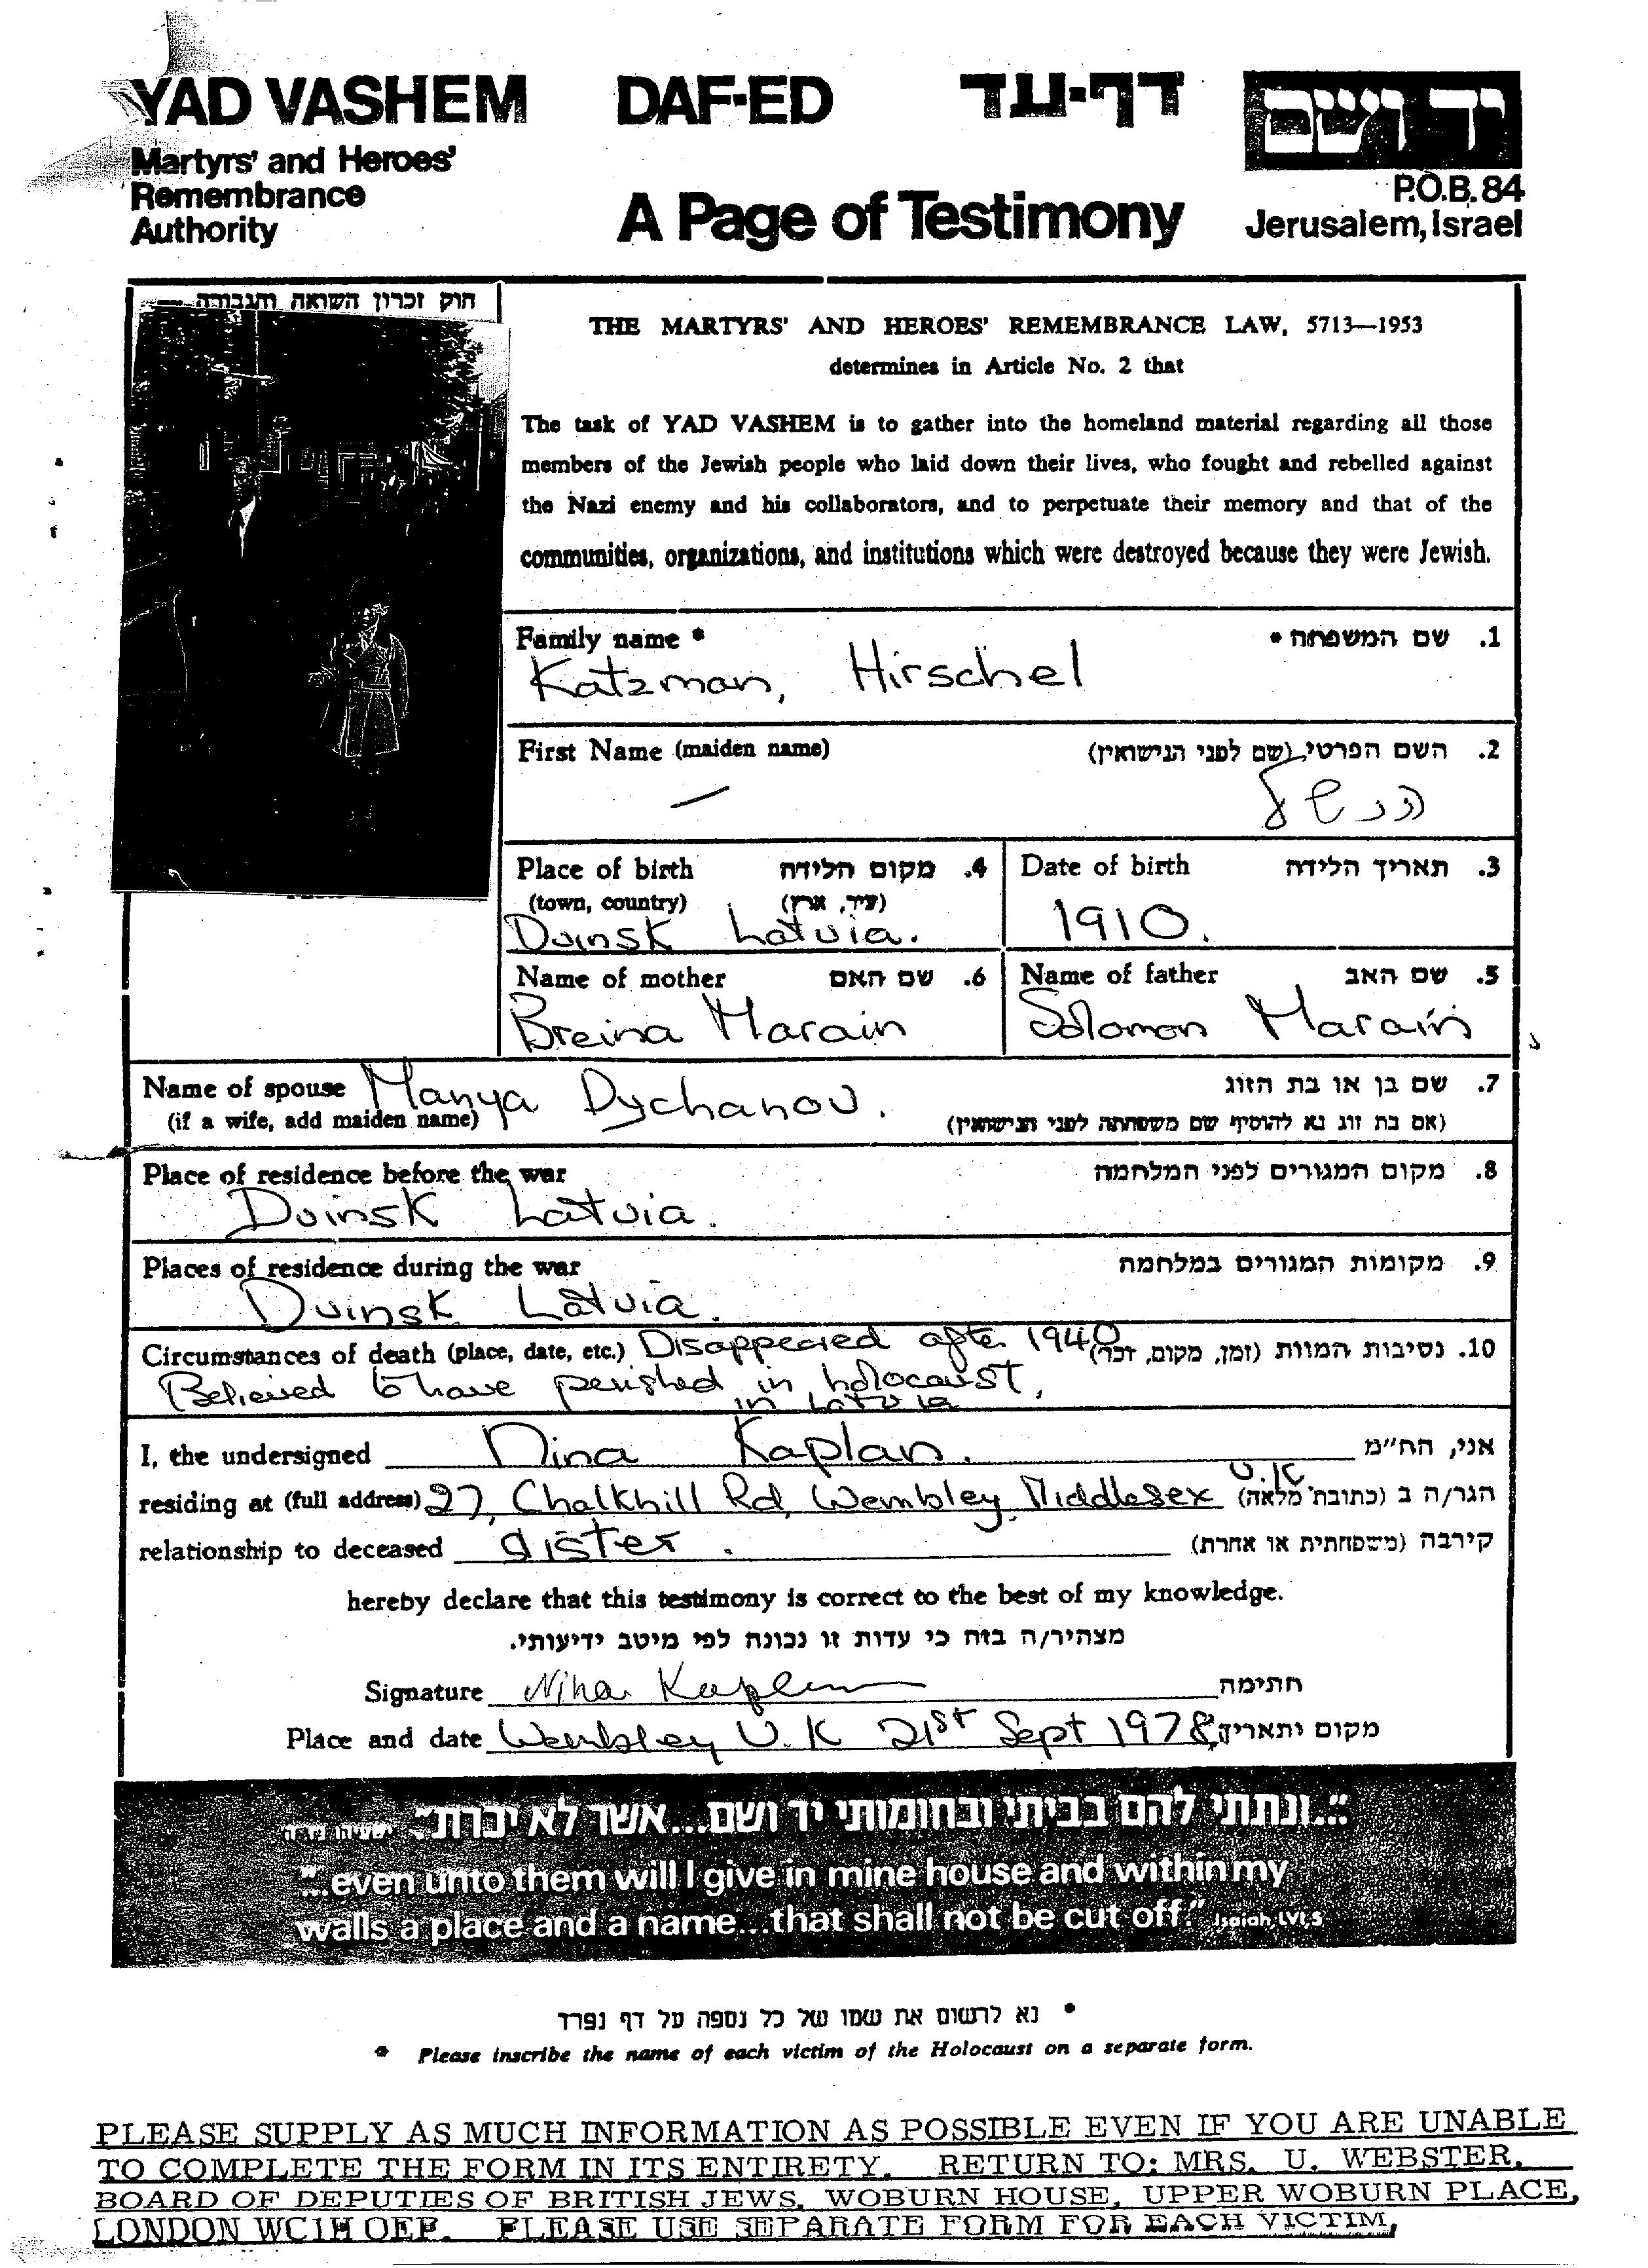 YAD VASHEM DAF-ED דף-עד יד ושם
Martyrs' and Heroes'
Remembrance
Authority
A Page of Testimony
P.O.B. 84
Jerusalem, Israel
חוק זכרון השואה והגבורה —
THE MARTYRS' AND HEROES' REMEMBRANCE LAW, 5713—1953
determines in Article No. 2 that
The task of YAD VASHEM is to gather into the homeland material regarding all those
members of the Jewish people who laid down their lives, who fought and rebelled against
the Nazi enemy and his collaborators, and to perpetuate their memory and that of the
communities, organizations, and institutions which were destroyed because they were Jewish.
Family name * 1. שם המשפחה *
Katzman, Hirschel
First Name (maiden name) 2. השם הפרטי (שם לפני הנישואין)
—
Place of birth 4. מקום הלידה
(town, country) (עיר, ארץ)
Dvinsk Latvia.
Date of birth 3. תאריך הלידה
1910.
Name of mother 6. שם האם
Breina Marain
Name of father 5. שם האב
Solomon Marain
Name of spouse Manya Dychanov. 7. שם בן או בת הזוג
(if a wife, add maiden name) (אם בת זוג נא להוסיף שם משפחתה לפני הנישואין)
Place of residence before the war 8. מקום המגורים לפני המלחמה
Dvinsk Latvia.
Places of residence during the war 9. מקומות המגורים במלחמה
Dvinsk Latvia.
Circumstances of death (place, date, etc.) Disappeared after 1940 10. נסיבות המוות (זמן, מקום, וכו')
Believed to have perished in holocaust,
in Latvia
I, the undersigned Nina Kaplan. אני, הח"מ
residing at (full address) 27, Chalkhill Rd, Wembley, Middlesex הגר/ה ב (כתובת מלאה)
relationship to deceased sister. קירבה (משפחתית או אחרת)
hereby declare that this testimony is correct to the best of my knowledge.
מצהיר/ה בזה כי עדות זו נכונה לפי מיטב ידיעותי.
Signature Nina Kaplan חתימה
Place and date Wembley U.K 21st Sept 1978 מקום ותאריך
"...ונתתי להם בביתי ובחומותי יד ושם...אשר לא יכרת" ישעיהו נו ה
"...even unto them will I give in mine house and within my
walls a place and a name...that shall not be cut off." Isaiah, LVI,5
* נא לרשום את שמו של כל נספה על דף נפרד
* Please inscribe the name of each victim of the Holocaust on a separate form.
PLEASE SUPPLY AS MUCH INFORMATION AS POSSIBLE EVEN IF YOU ARE UNABLE
TO COMPLETE THE FORM IN ITS ENTIRETY. RETURN TO: MRS. U. WEBSTER,
BOARD OF DEPUTIES OF BRITISH JEWS, WOBURN HOUSE, UPPER WOBURN PLACE,
LONDON WC1H OEP. PLEASE USE SEPARATE FORM FOR EACH VICTIM,